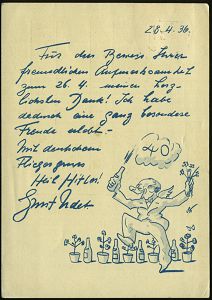 28.4.36.
Für den Beweis Ihrer
freundlichen Aufmerksamkeit
zum 26. 4. meinen herz-
lichsten Dank! Ich habe
dadurch eine ganz besondere
Freude erlebt -
Mit deutschem
Fliegergruss
Heil Hitler!
Ernst Udet
40